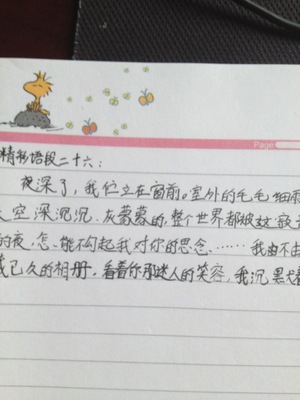 Page
精彩语段二十六:
夜深了,我伫立在窗前。室外的毛毛细雨
天空深沉沉.灰蒙蒙的,整个世界都被寂
的夜,怎能不勾起我对你的思念……我由不
已久的相册,看着你那迷人的笑容,我沉默